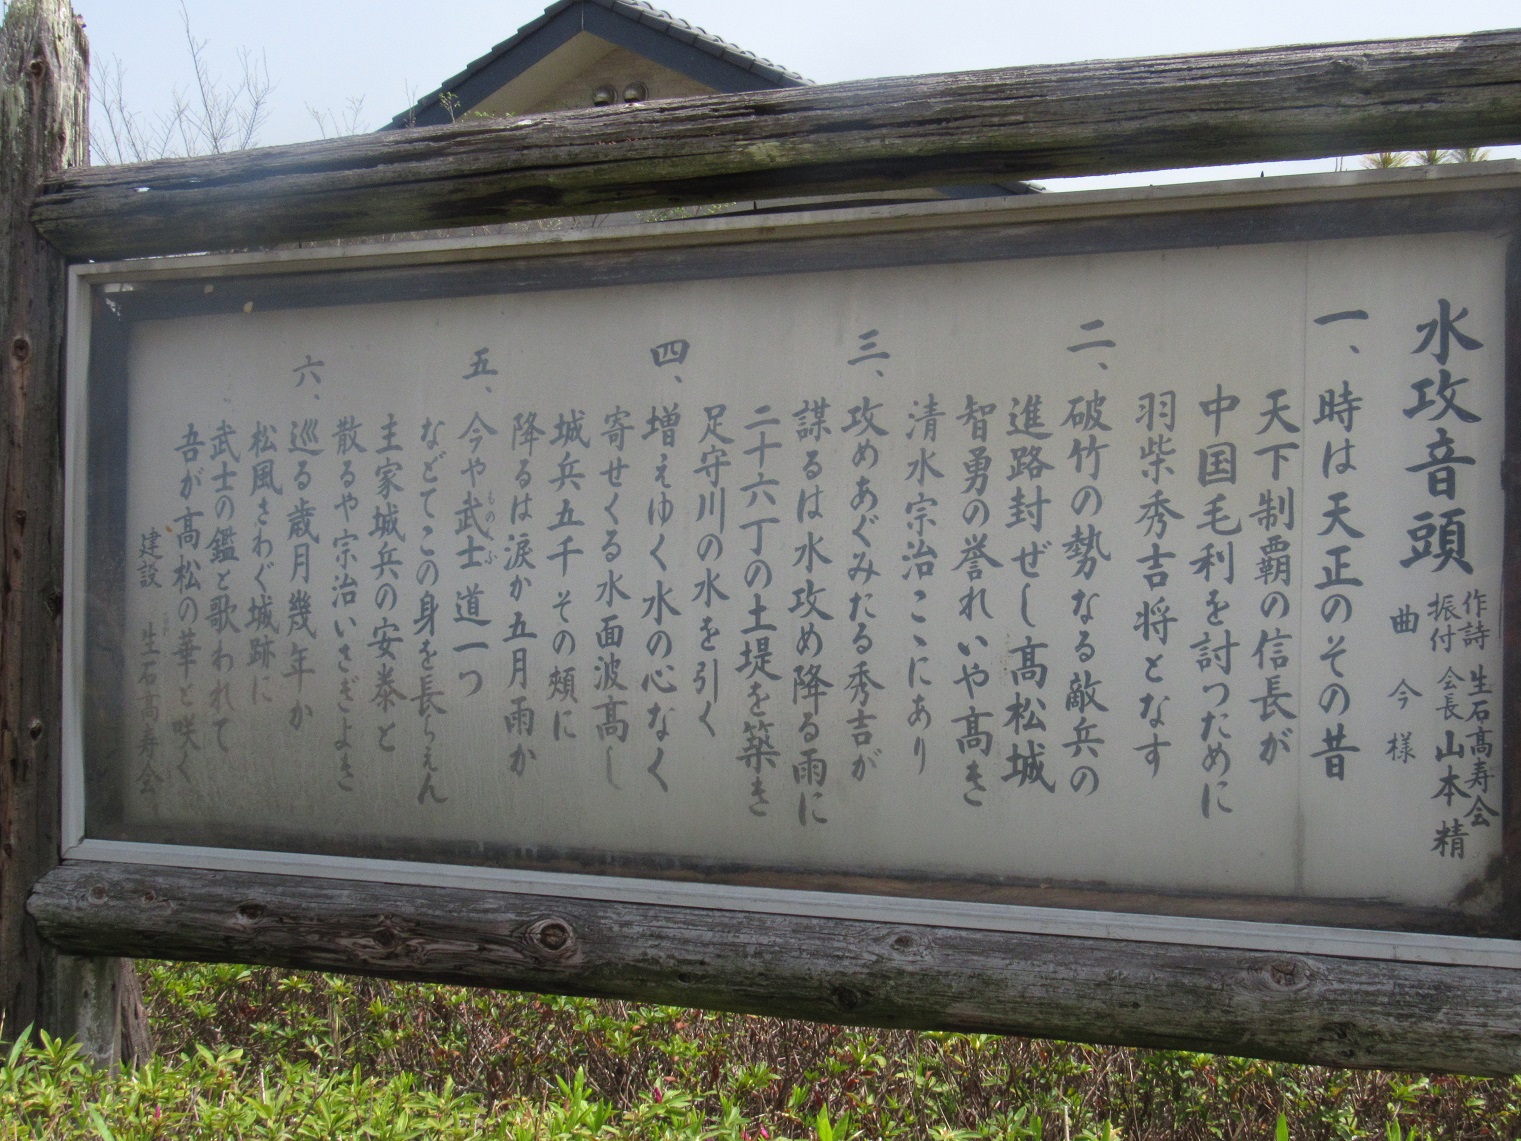 水攻音頭
作詩 生石高寿会
振付 会長 山本 精
曲 今様
一、時は天正のその昔
天下制覇の信長が
中国毛利を討つために
羽柴秀吉将となす
二、破竹の勢なる敵兵の
進路封ぜし髙松城
智勇の誉れいや髙き
清水宗治こゝにあり
三、攻めあぐみたる秀吉が
謀るは水攻め降る雨に
二十六丁の土堤を築き
足守川の水を引く
四、増えゆく水の心なく
寄せくる水面波髙し
城兵五千その頬に
降るは涙か五月雨か
五、今や武士道一つ
もののふ
などてこの身を長らえん
主家城兵の安泰と
散るや宗治いさぎよき
六、巡る歳月幾年か
松風さわぐ城跡に
武士の鑑と歌われて
吾が髙松の華と咲く
建設 生石髙寿会